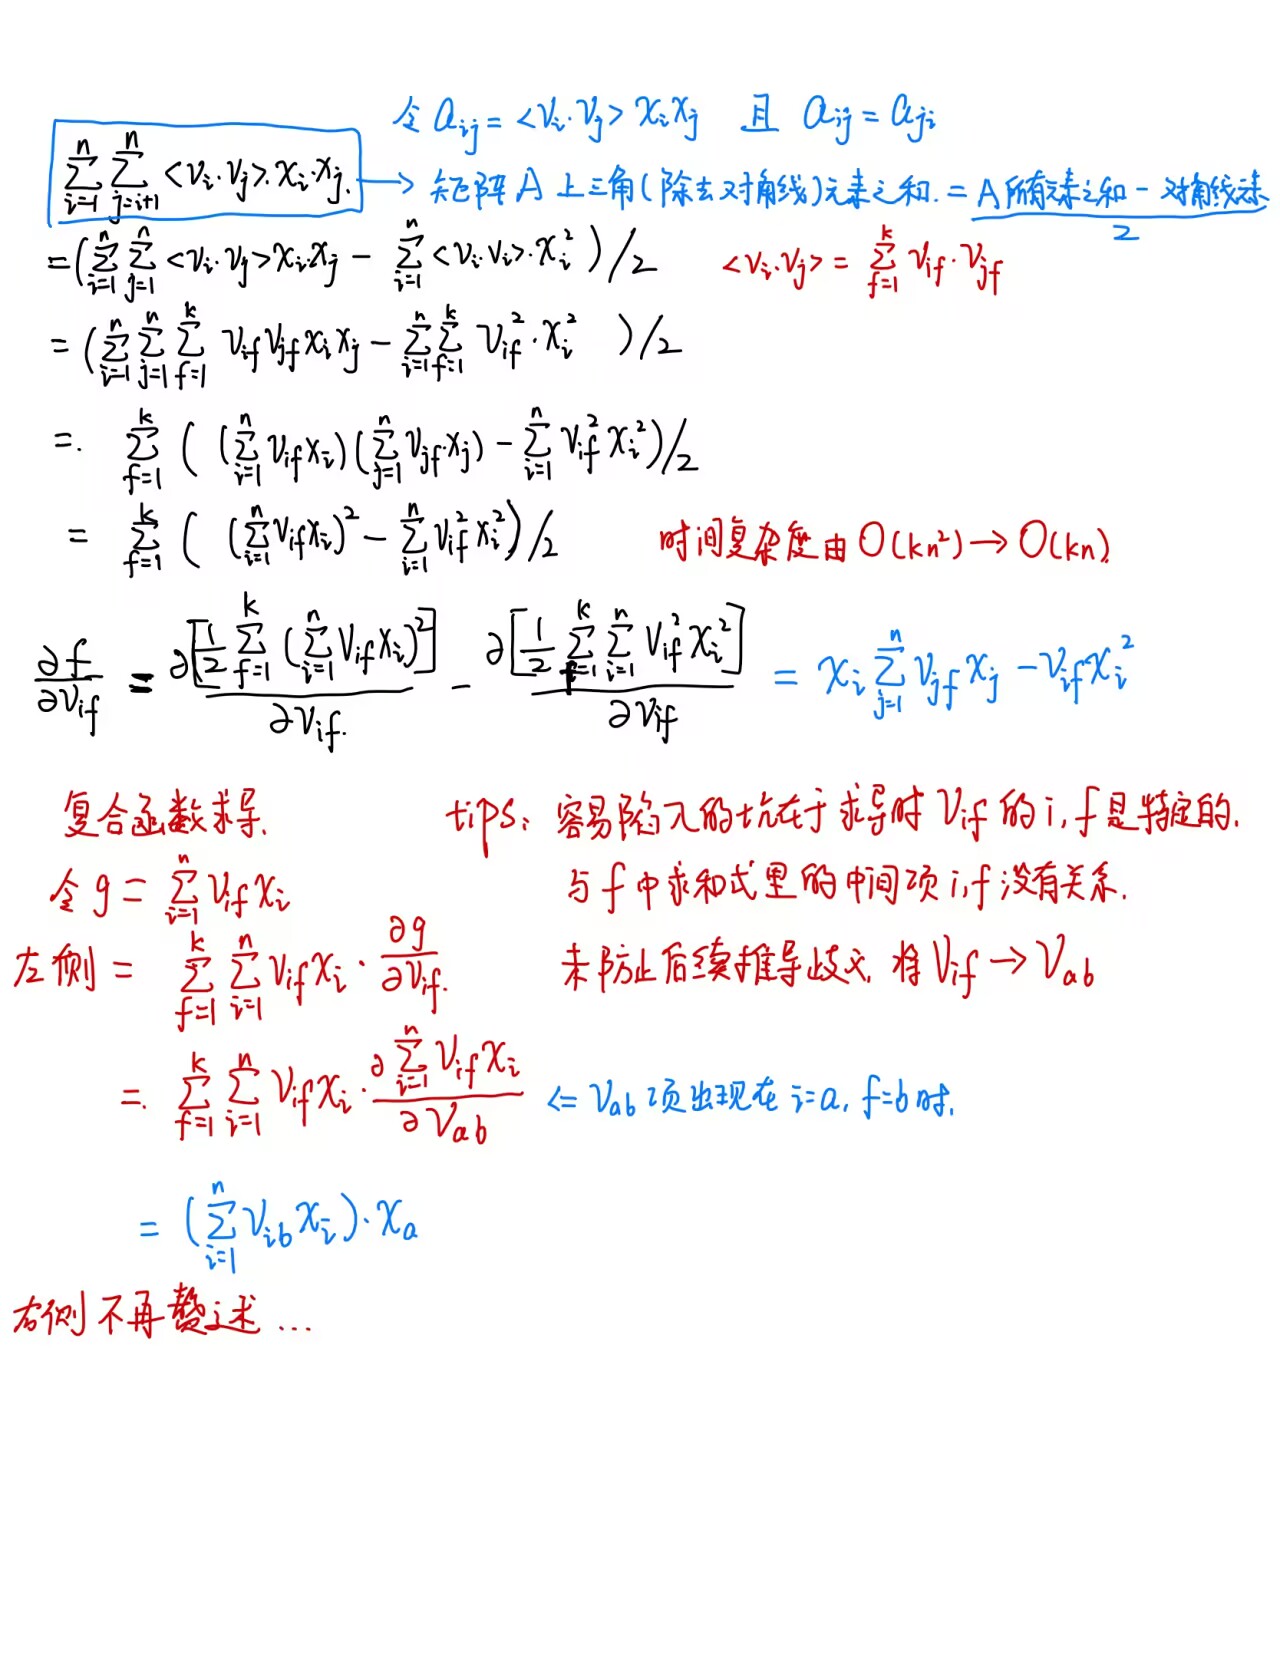 令 a_{ij} = <v_i·v_j> x_i x_j 且 a_{ij} = a_{ji}
\sum_{i=1}^{n} \sum_{j=i+1}^{n} <v_i·v_j>·x_i·x_j. → 矩阵A上三角(除去对角线)元素之和. = \frac{A所有元素之和 - 对角线元素}{2}
= (\sum_{i=1}^{n} \sum_{j=1}^{n} <v_i·v_j> x_i x_j - \sum_{i=1}^{n} <v_i·v_i>·x_i^2)/2 <v_i·v_j> = \sum_{f=1}^{k} v_{if}·v_{jf}
= (\sum_{i=1}^{n} \sum_{j=1}^{n} \sum_{f=1}^{k} v_{if} v_{jf} x_i x_j - \sum_{i=1}^{n} \sum_{f=1}^{k} v_{if}^2·x_i^2)/2
=. \sum_{f=1}^{k} ((\sum_{i=1}^{n} v_{if} x_i)(\sum_{j=1}^{n} v_{jf}·x_j) - \sum_{i=1}^{n} v_{if}^2 x_i^2)/2
= \sum_{f=1}^{k} ((\sum_{i=1}^{n} v_{if} x_i)^2 - \sum_{i=1}^{n} v_{if}^2 x_i^2)/2 时间复杂度由 O(kn^2) → O(kn).
\frac{∂f}{∂v_{if}} = \frac{∂[\frac{1}{2} \sum_{f=1}^{k} (\sum_{i=1}^{n} v_{if} x_i)^2]}{∂v_{if}.} - \frac{∂[\frac{1}{2} \sum_{f=1}^{k} \sum_{i=1}^{n} v_{if}^2 x_i^2]}{∂v_{if}} = x_i \sum_{j=1}^{n} v_{jf} x_j - v_{if} x_i^2
复合函数求导. tips: 容易陷入的坑在于求导时 v_{if} 的 i, f 是特定的.
令 g = \sum_{i=1}^{n} v_{if} x_i 与 f 中求和式里的中间项 i,f 没有关系.
左侧 = \sum_{f=1}^{k} \sum_{i=1}^{n} v_{if} x_i · \frac{∂g}{∂v_{if}.} 未防止后续推导歧义, 将 v_{if} → v_{ab}
=. \sum_{f=1}^{k} \sum_{i=1}^{n} v_{if} x_i · \frac{∂\sum_{i=1}^{n} v_{if} x_i}{∂v_{ab}} <= v_{ab} 项出现在 i=a, f=b 时.
= (\sum_{i=1}^{n} v_{ib} x_i)·x_a
右侧不再赘述 ...